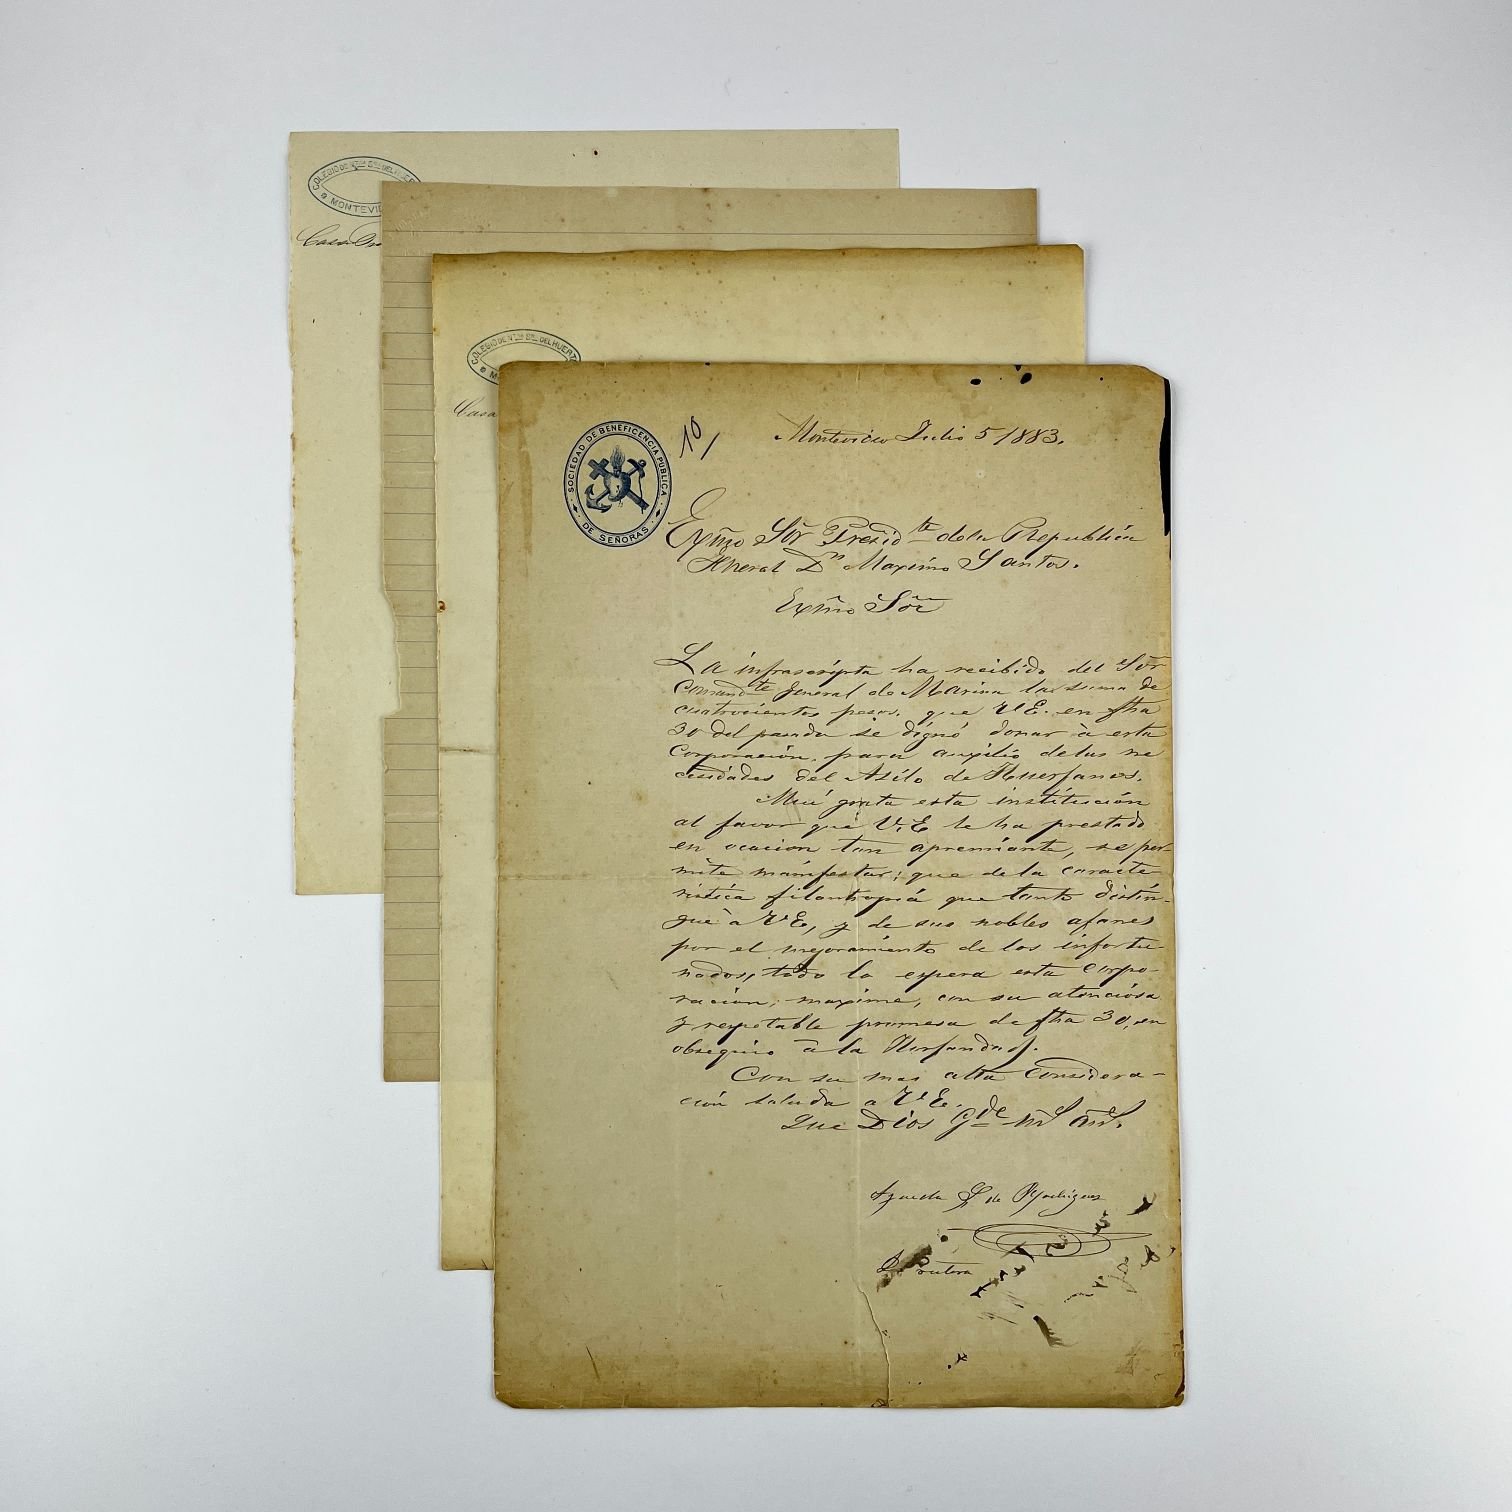 COLEGIO DE Ntra Sra DEL HUER
MONTEVI
Casa
COLEGIO DE Ntra Sra DEL HUERTO
M
Casa
SOCIEDAD DE BENEFICENCIA PUBLICA
DE SEÑORAS
10/
Montevideo Julio 5/1883.
Exmo Sõr Presidte de la Republica
General Dn Maximo Santos.
Exmo Sõr
La infrascripta ha recibido del Sõr
Comandte General de Marina la suma de
cuatrocientos pesos. que V.E. en fha
30 del pasado se dignó donar à esta
Corporación, para auxilio de las ne
cesidades del Asilo de Huerfanos.
Mui grata esta institución
al favor que V.E le ha prestado
en ocacion tan apremiante, se per-
mite manifestar; que de la caracte
ristica filantropia que tanto distin-
gue à V.E, y de sus nobles afanes
por el mejoramiento de los infortu-
nados, todo lo espera esta corpo-
racion, maxime, con su atenciosa
y respetable promesa de fha 30, en
obsequio à la Horfandad.
Con su mas alta considera-
ción saluda a V.E.
Que Dios Gde ms as.
Agueda S. de Rodriguez